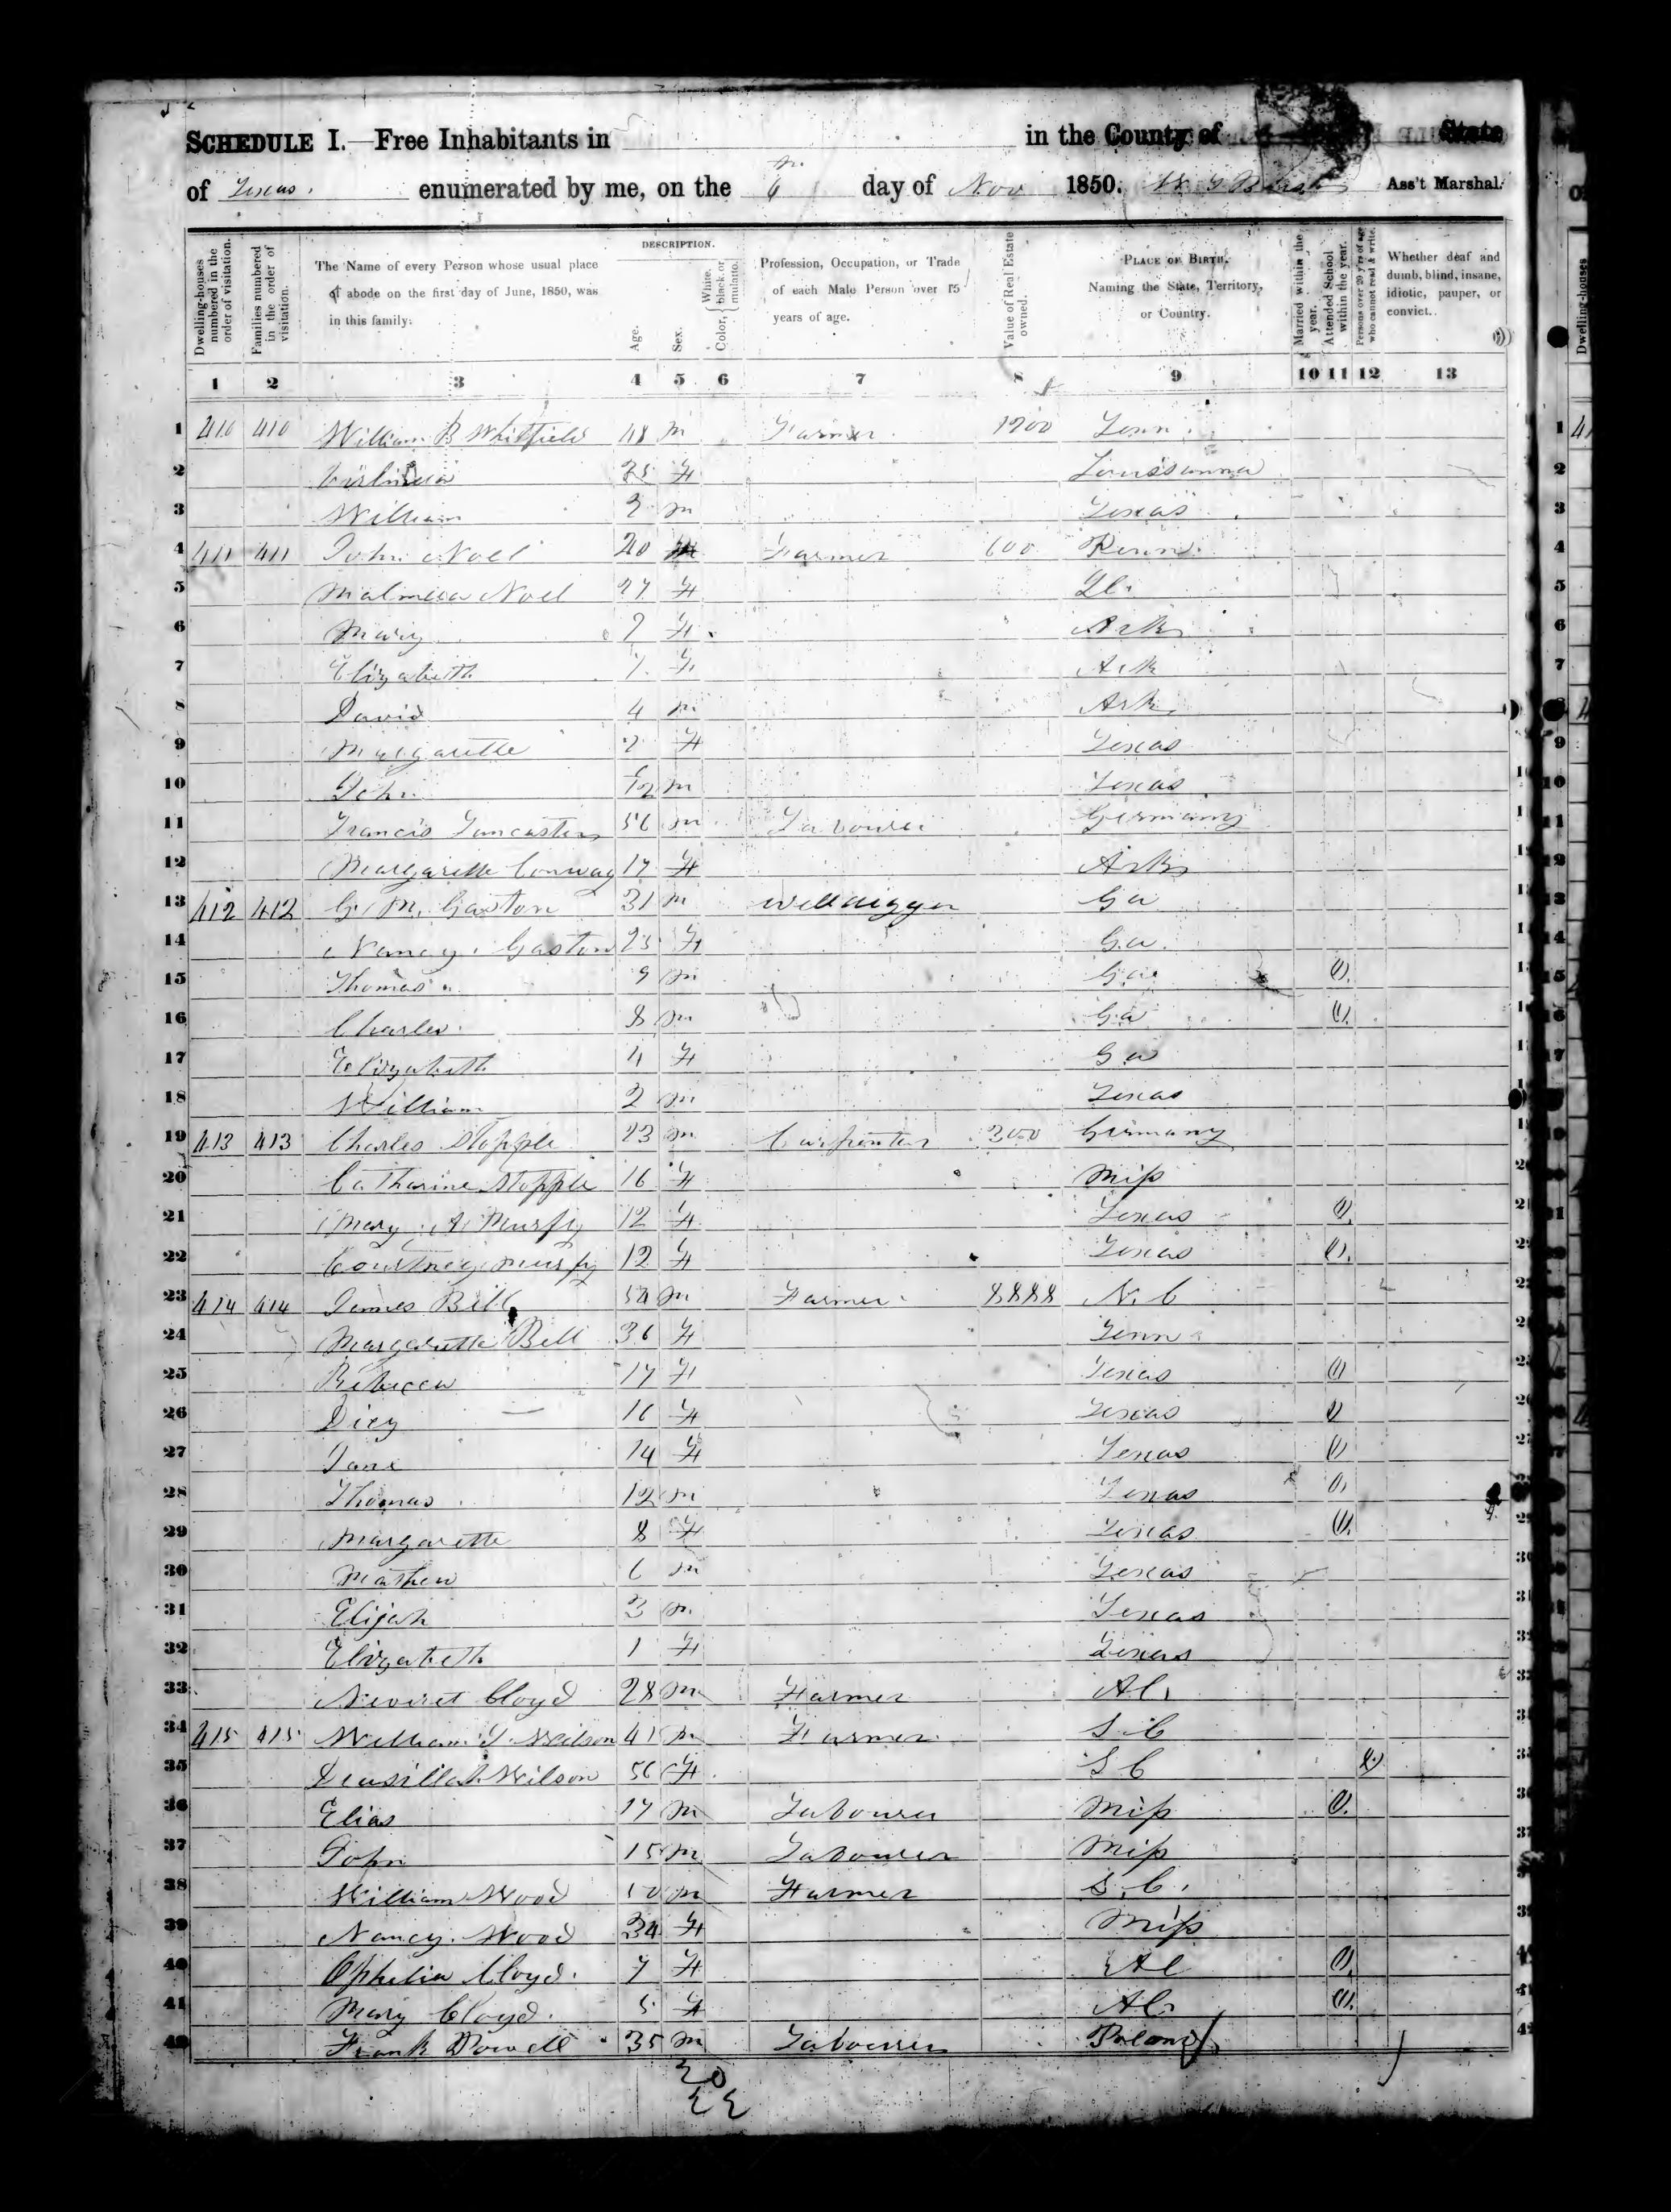 SCHEDULE I.—Free Inhabitants in in the County of State
of Texas. enumerated by me, on the 6 day of Nov 1850. Ass't Marshal.
Dwelling-houses numbered in the order of visitation.
Families numbered in the order of visitation.
The Name of every Person whose usual place of abode on the first day of June, 1850, was in this family.
DESCRIPTION.
Age.
Sex.
Color, White, black, or mulatto.
Profession, Occupation, or Trade of each Male Person over 15 years of age.
Value of Real Estate owned.
PLACE OF BIRTH. Naming the State, Territory, or Country.
Married within the year.
Attended School within the year.
Persons over 20 y'rs of age who cannot read & write.
Whether deaf and dumb, blind, insane, idiotic, pauper, or convict.
1 2 3 4 5 6 7 8 9 10 11 12 13
1 410 410 William B Whitfield 48 m Farmer 1200 Tenn. 1
2 25 F Louisianna 2
3 William m Texas 3
4 411 411 John Noel m Farmer 600 4
5 Noel 27 F 5
6 Mary F Ark 6
7 Elizabeth F Ark 7
8 David 4 m Ark
9 Margarette 2 F Texas 9
10 John m Texas 10
11 Francis Lancaster 56 m Labourer Germany 11
12 Margarette Conway 17 F Ark 12
13 412 412 G. M. Gaston 31 m well digger Ga 13
14 Nancy Gaston 25 F Ga. 14
15 Thomas 9 m Ga 1 15
16 Charles 8 m Ga 1 16
17 Elizabeth 4 F Ga 17
18 William 2 m Texas
19 413 413 Charles Stopple 23 m Carpenter 300 Germany
20 Catharine Stopple 16 F Miss
21 Mary A Murfy 12 F Texas 1
22 Courtney Murfy 12 F Texas 1
23 414 414 James Bell 54 m Farmer 8888 N. C
24 Margarette Bell 36 F Tenn
25 Rebecca 17 F Texas 1
26 Dicy 16 F Texas 1
27 Jane 14 F Texas 1
28 Thomas 12 m Texas 1
29 Margarette 8 F Texas 1
30 Mathew 6 m Texas
31 Elijah 3 m Texas
32 Elizabeth 1 F Texas
33 Cloyd 28 m Farmer Al.
34 415 415 William Wilson 41 m Farmer S. C
35 Wilson 56 F S C
36 Elias 17 m Labourer Miss 1
37 John 15 m Labourer Miss
38 William Wood 50 m Farmer S. C.
39 Nancy Wood 34 F Miss
40 Ophelia Cloyd 7 F Al 1
41 Mary Cloyd 5 F Al. 1
42 Frank Powell 35 m Labourer Poland
20
22